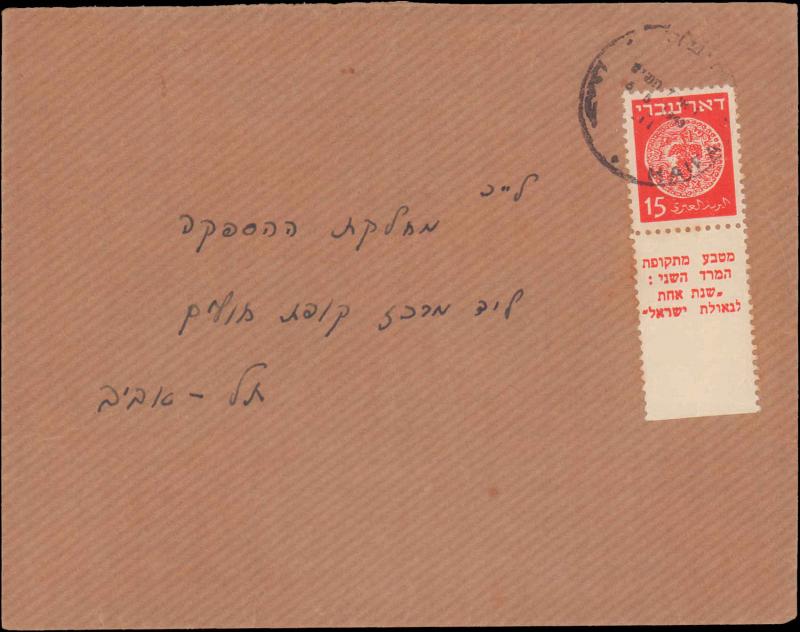 דאר עברי
15 البريد العبري
מטבע מתקופת
המרד השני:
„שנת אחת
לגאולת ישראל”
HAIFA
לי"כ
מחלקת ההספקה
ליד מרכז קופת חולים
תל-אביב